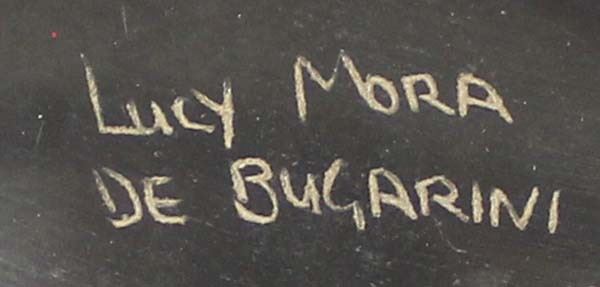 LUCY MORA
DE BUGARINI